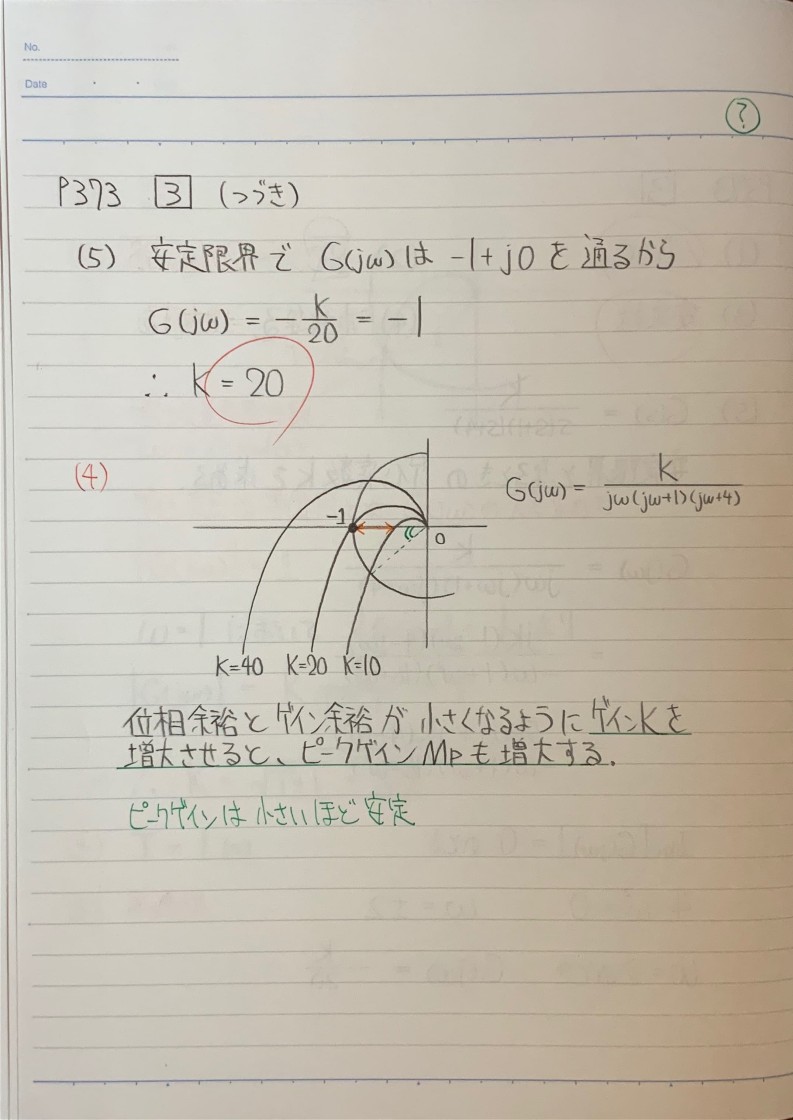 No.
Date
?
P373 3 (つづき)
(5) 安定限界で G(jω)は -1+j0 を通るから
G(jω) = -K/20 = -1
∴ K = 20
(4)
G(jω) = K/jω(jω+1)(jω+4)
-1
0
K=40 K=20 K=10
位相余裕とゲイン余裕が小さくなるようにゲインKを
増大させると、ピークゲインMpも増大する.
ピークゲインは小さいほど安定